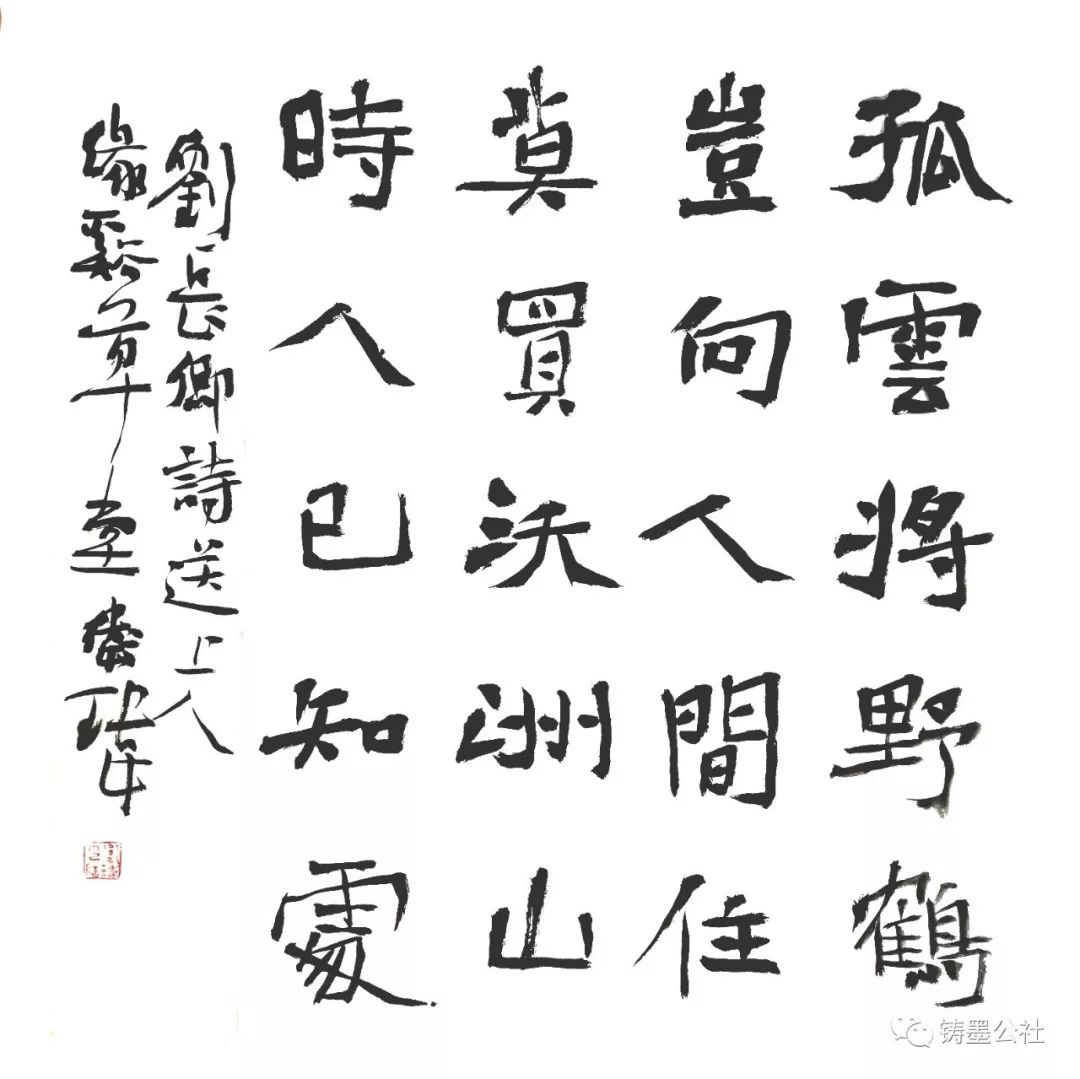 孤雲將野鶴
豈向人間住
莫買沃洲山
時人已知處
劉長卿詩送上人
谿草堂
铸墨公社